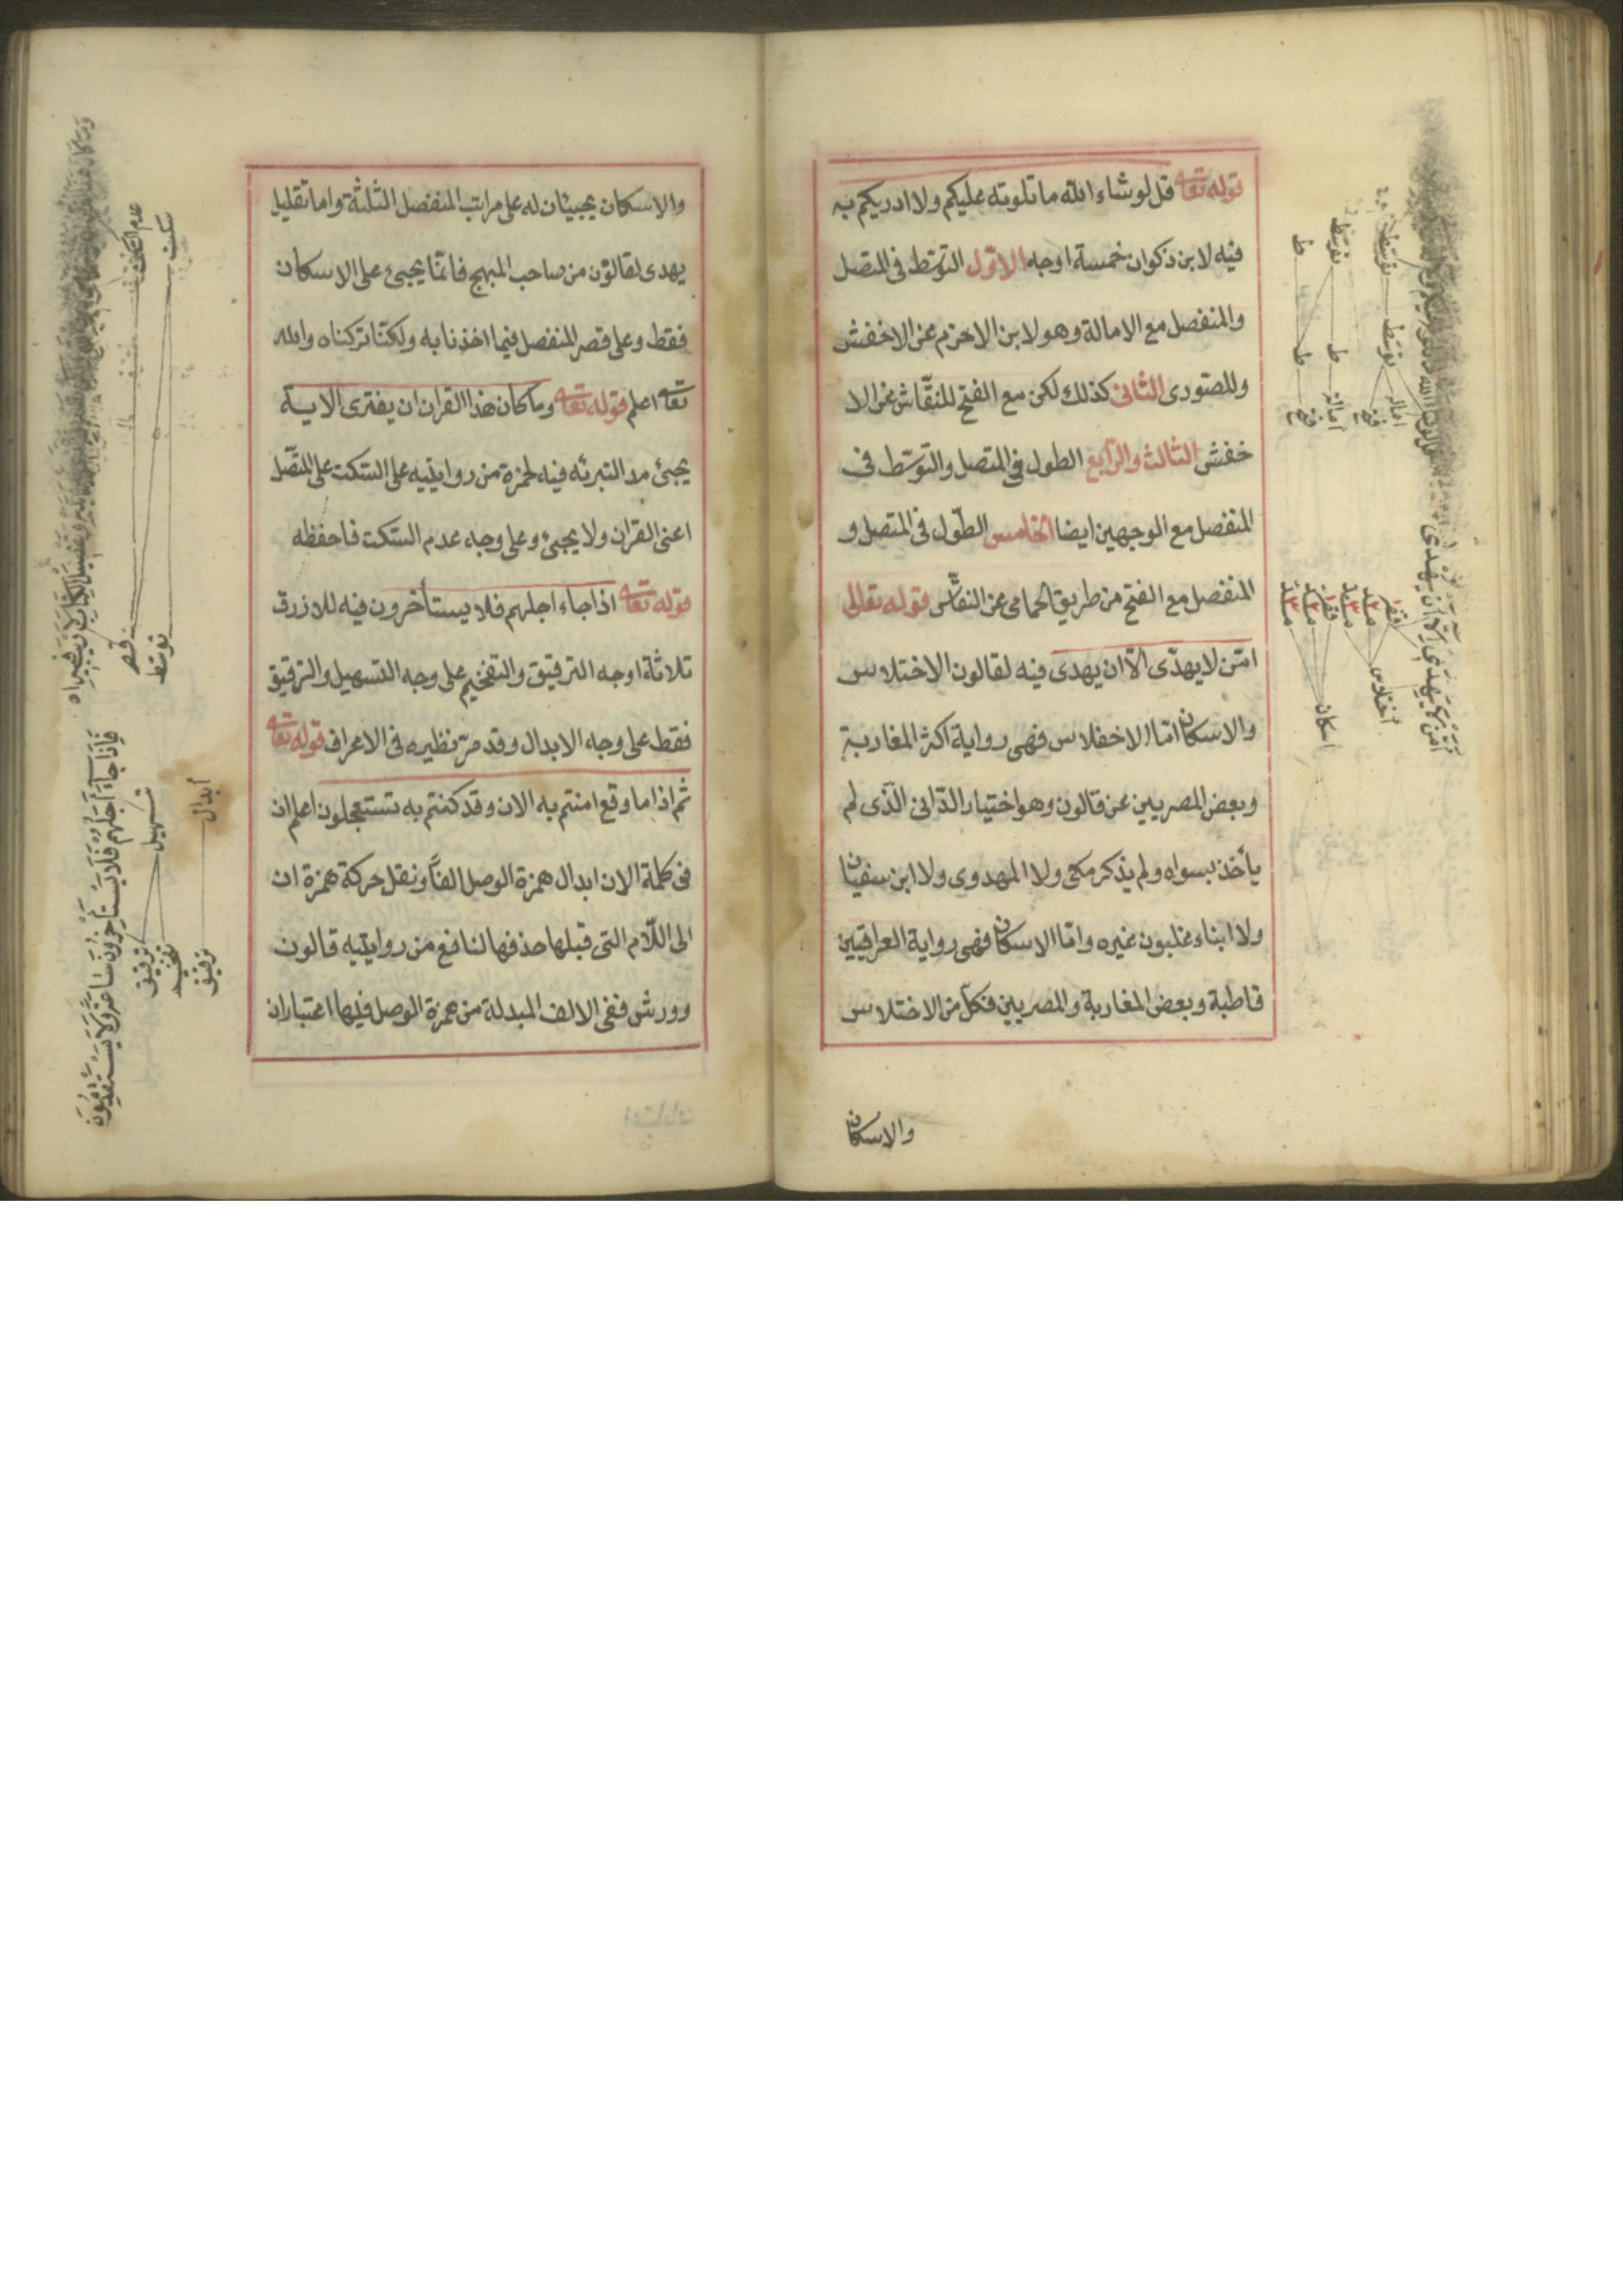 قوله تعالى قل لو شاء الله ما تلوته عليكم ولا ادريكم به
فيه لابن ذكوان خمسة اوجه الاوّل التوسّط فى المتصل
والمنفصل مع الامالة وهو لابن الاخرم عن الاخفش
وللصّورى الثانى كذلك لكن مع الفتح للنقّاش عن الا
خفش الثالث والرّابع الطول فى المتصل والتوسّط فى
المنفصل مع الوجهين ايضا الخامس الطّول فى المتصل و
المنفصل مع الفتح من طريق الحمامى عن النقاش قوله تعالى
امّن لا يهدّى الّا ان يهدى فيه لقالون الاختلاس
والاسكان امّا الاختلاس فهى رواية اكثر المغاربة
وبعض المصريين عن قالون وهو اختيار الدّانى الّذى لم
يأخذ بسواه ولم يذكر مكى ولا المهدوى ولا ابن سفيان
ولا ابناء غلبون غيره وامّا الاسكان فهى رواية العراقيين
قاطبة وبعض المغاربة والمصريين فكلّ من الاختلاس
والاسكان
توسّط
توسّط
امالة
فتح
توسّط
ط
امالة
ط
ط
فتح
امّن لا يهدّى الّا ان يهدى
اختلاس
اسكان
والاسكان يجيئان له على مراتب المنفصل الثلثة واما تقليل
يهدى لقالون من صاحب المبهج فانّما يجيئ على الاسكان
فقط وعلى قصر المنفصل فيما اخذنا به ولكنّا تركناه والله
تعالى اعلم قوله تعالى وما كان هذا القران ان يفترى الاية
يجيئ مد التبرئه فيه لحمزة من روايتيه على السّكت على المتّصل
اعنى القران ولا يجيئ وعلى وجه عدم السّكت فاحفظه
قوله تعالى اذا جاء اجلهم فلا يستأخرون فيه للازرق
ثلاثة اوجه الترقيق والتفخيم على وجه التسهيل والترقيق
فقط على وجه الابدال وقد مرّ نظيره فى الاعراف قوله تعالى
ثم اذا ما وقع امنتم به الان وقد كنتم به تستعجلون اعلم ان
فى كلمة الان ابدال همزة الوصل الفاً ونقل حركة همزة ان
الى اللّام التى قبلها حذفها لنافع من روايتيه قالون
وورش ففى الالف المبدلة من همزة الوصل فيها اعتباران
سكت
عدم السّكت
توسّط
قصر
فَاِذَا جَاءَ اَجَلُهُمْ فَلَا يَسْتَأْخِرُونَ سَاعَةً وَلَا يَسْتَقْدِمُونَ
ابدال
تسهيل
ترقيق
تفخيم
ترقيق